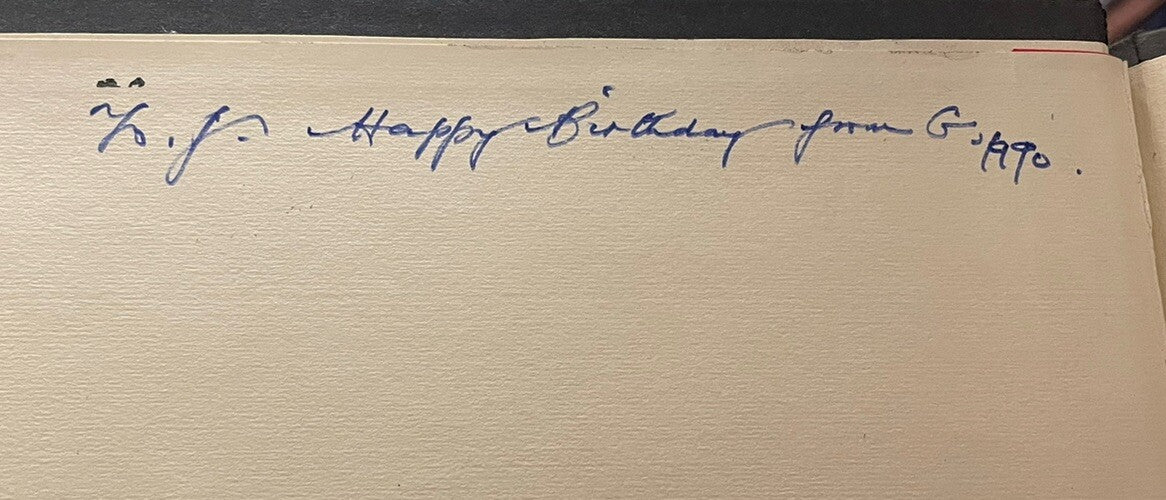 To. J. Happy Birthday from G. 1990.